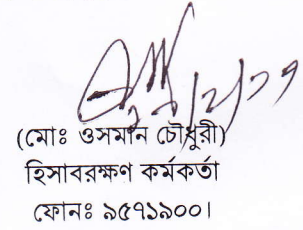 (মোঃ ওসমান চৌধুরী)
হিসাবরক্ষণ কর্মকর্তা
ফোনঃ ৯৫৭১৯০০।